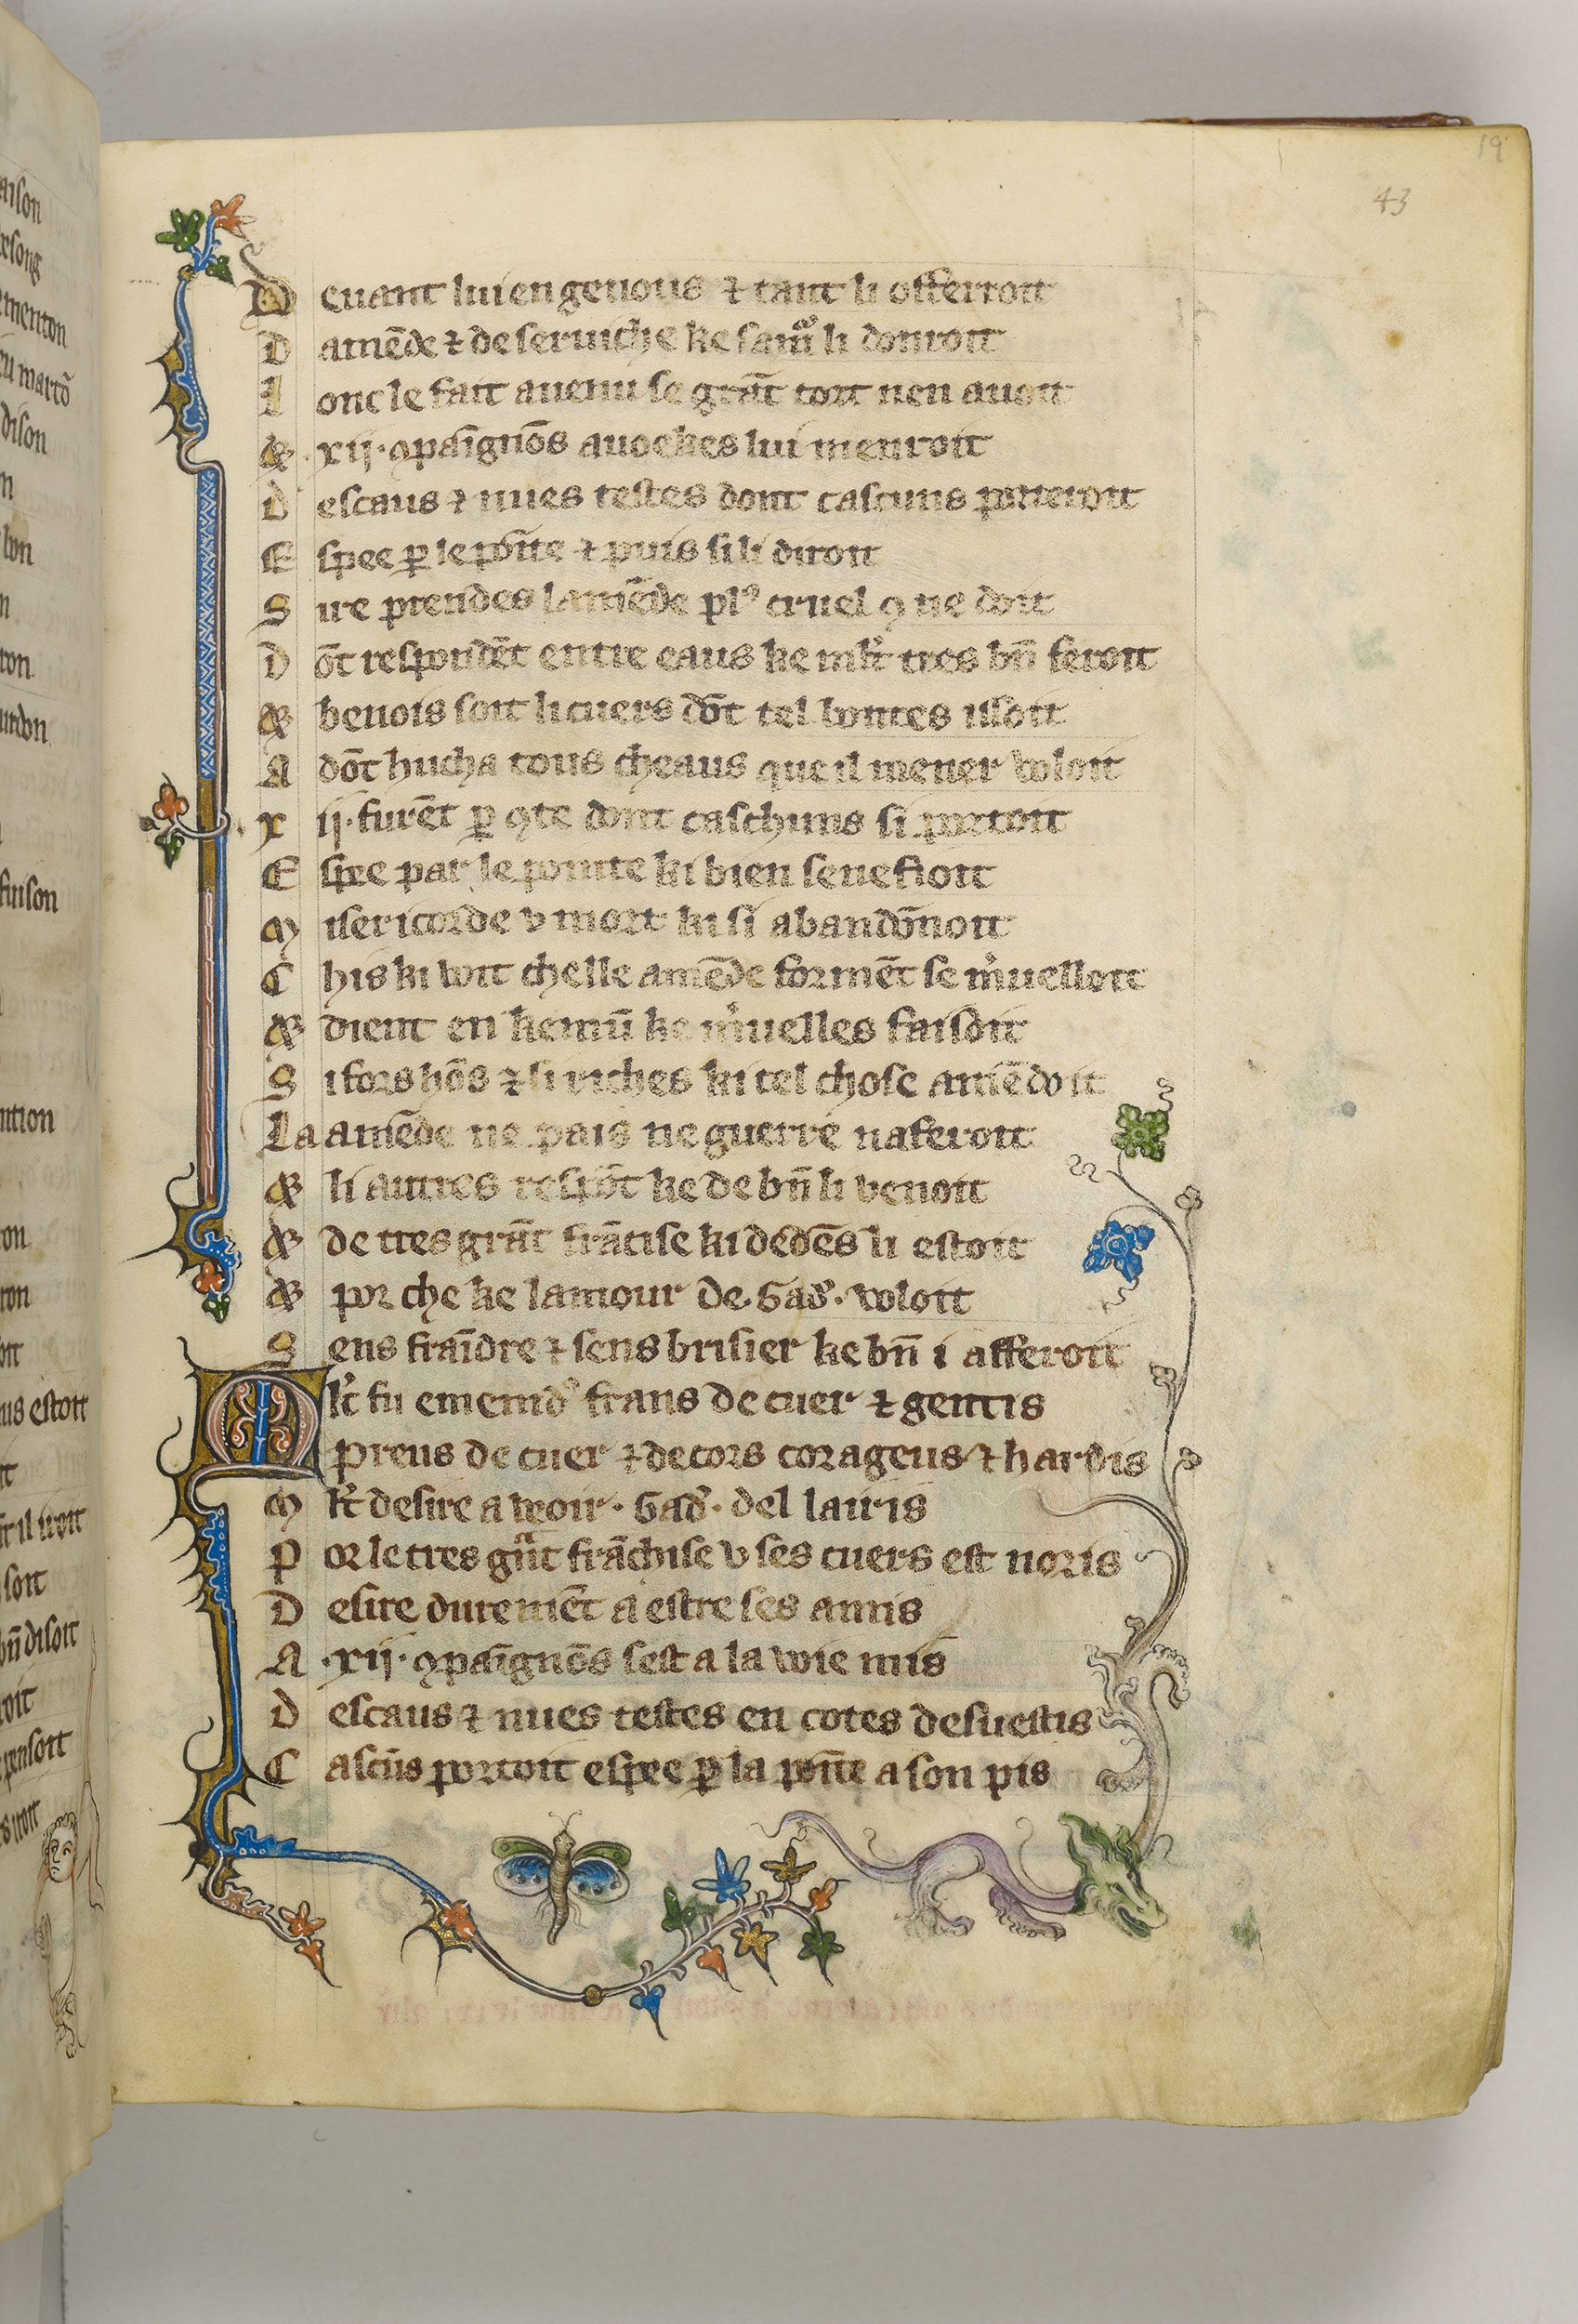 19
43
D euant lui en genous ⁊ tant li offerroit
D amēde ⁊ de seruiche ke samor li donroit
L onc le fait auenu se grāt tort nen auoit
& .xij. ꝯpaignōs auoekes lui menroit
D escaus ⁊ nues testes dont cascuns porteroit
E spee ꝑ le pōnte ⁊ puis si li diroit
S ire prendes lamēde plꝰ cruel ꝯ ne doit
D ōt respondēt entre eaus ke mlt tres bn̄ feroit
& benois soit li cuers dōt tel bontes issoit
A dōt hucha tous cheaus que il mener voloit
X ij. furēt ꝑ ꝯte dont caschuns si portoit
E spee par le pointe ki bien senefioit
M isericorde v mort ki si abandōnoit
C his ki voit chelle amēde formēt se mꝰuelloit
& dient en kemū ke mꝰuelles faisoit
S i fors hōs ⁊ si riches ki tel chose amēdoit
La amēde ne pais ne guerre naferoit
& li autres respōt ke de bn̄ li venoit
& de tres grāt frāchise ki dedēs li estoit
& por che ke lamour de Gad'. voloit
S ens fraīdre ⁊ sens brisier ke bn̄ i afferoit
M lt fu emenidꝰ frans de cuer ⁊ gentis
preus de cuer ⁊ de cors corageus ⁊ hardis
M lt desire a veoir. Gad'. del lauris
P or le tres grāt frāchise v ses cuers est noris
D esire durement a estre ses amis
A .xij. ꝯpaignōs sest a la voie mis
D escaus ⁊ nues testes en cotes desuestis
C ascūs portoit espee ꝑ la pointe a son pis